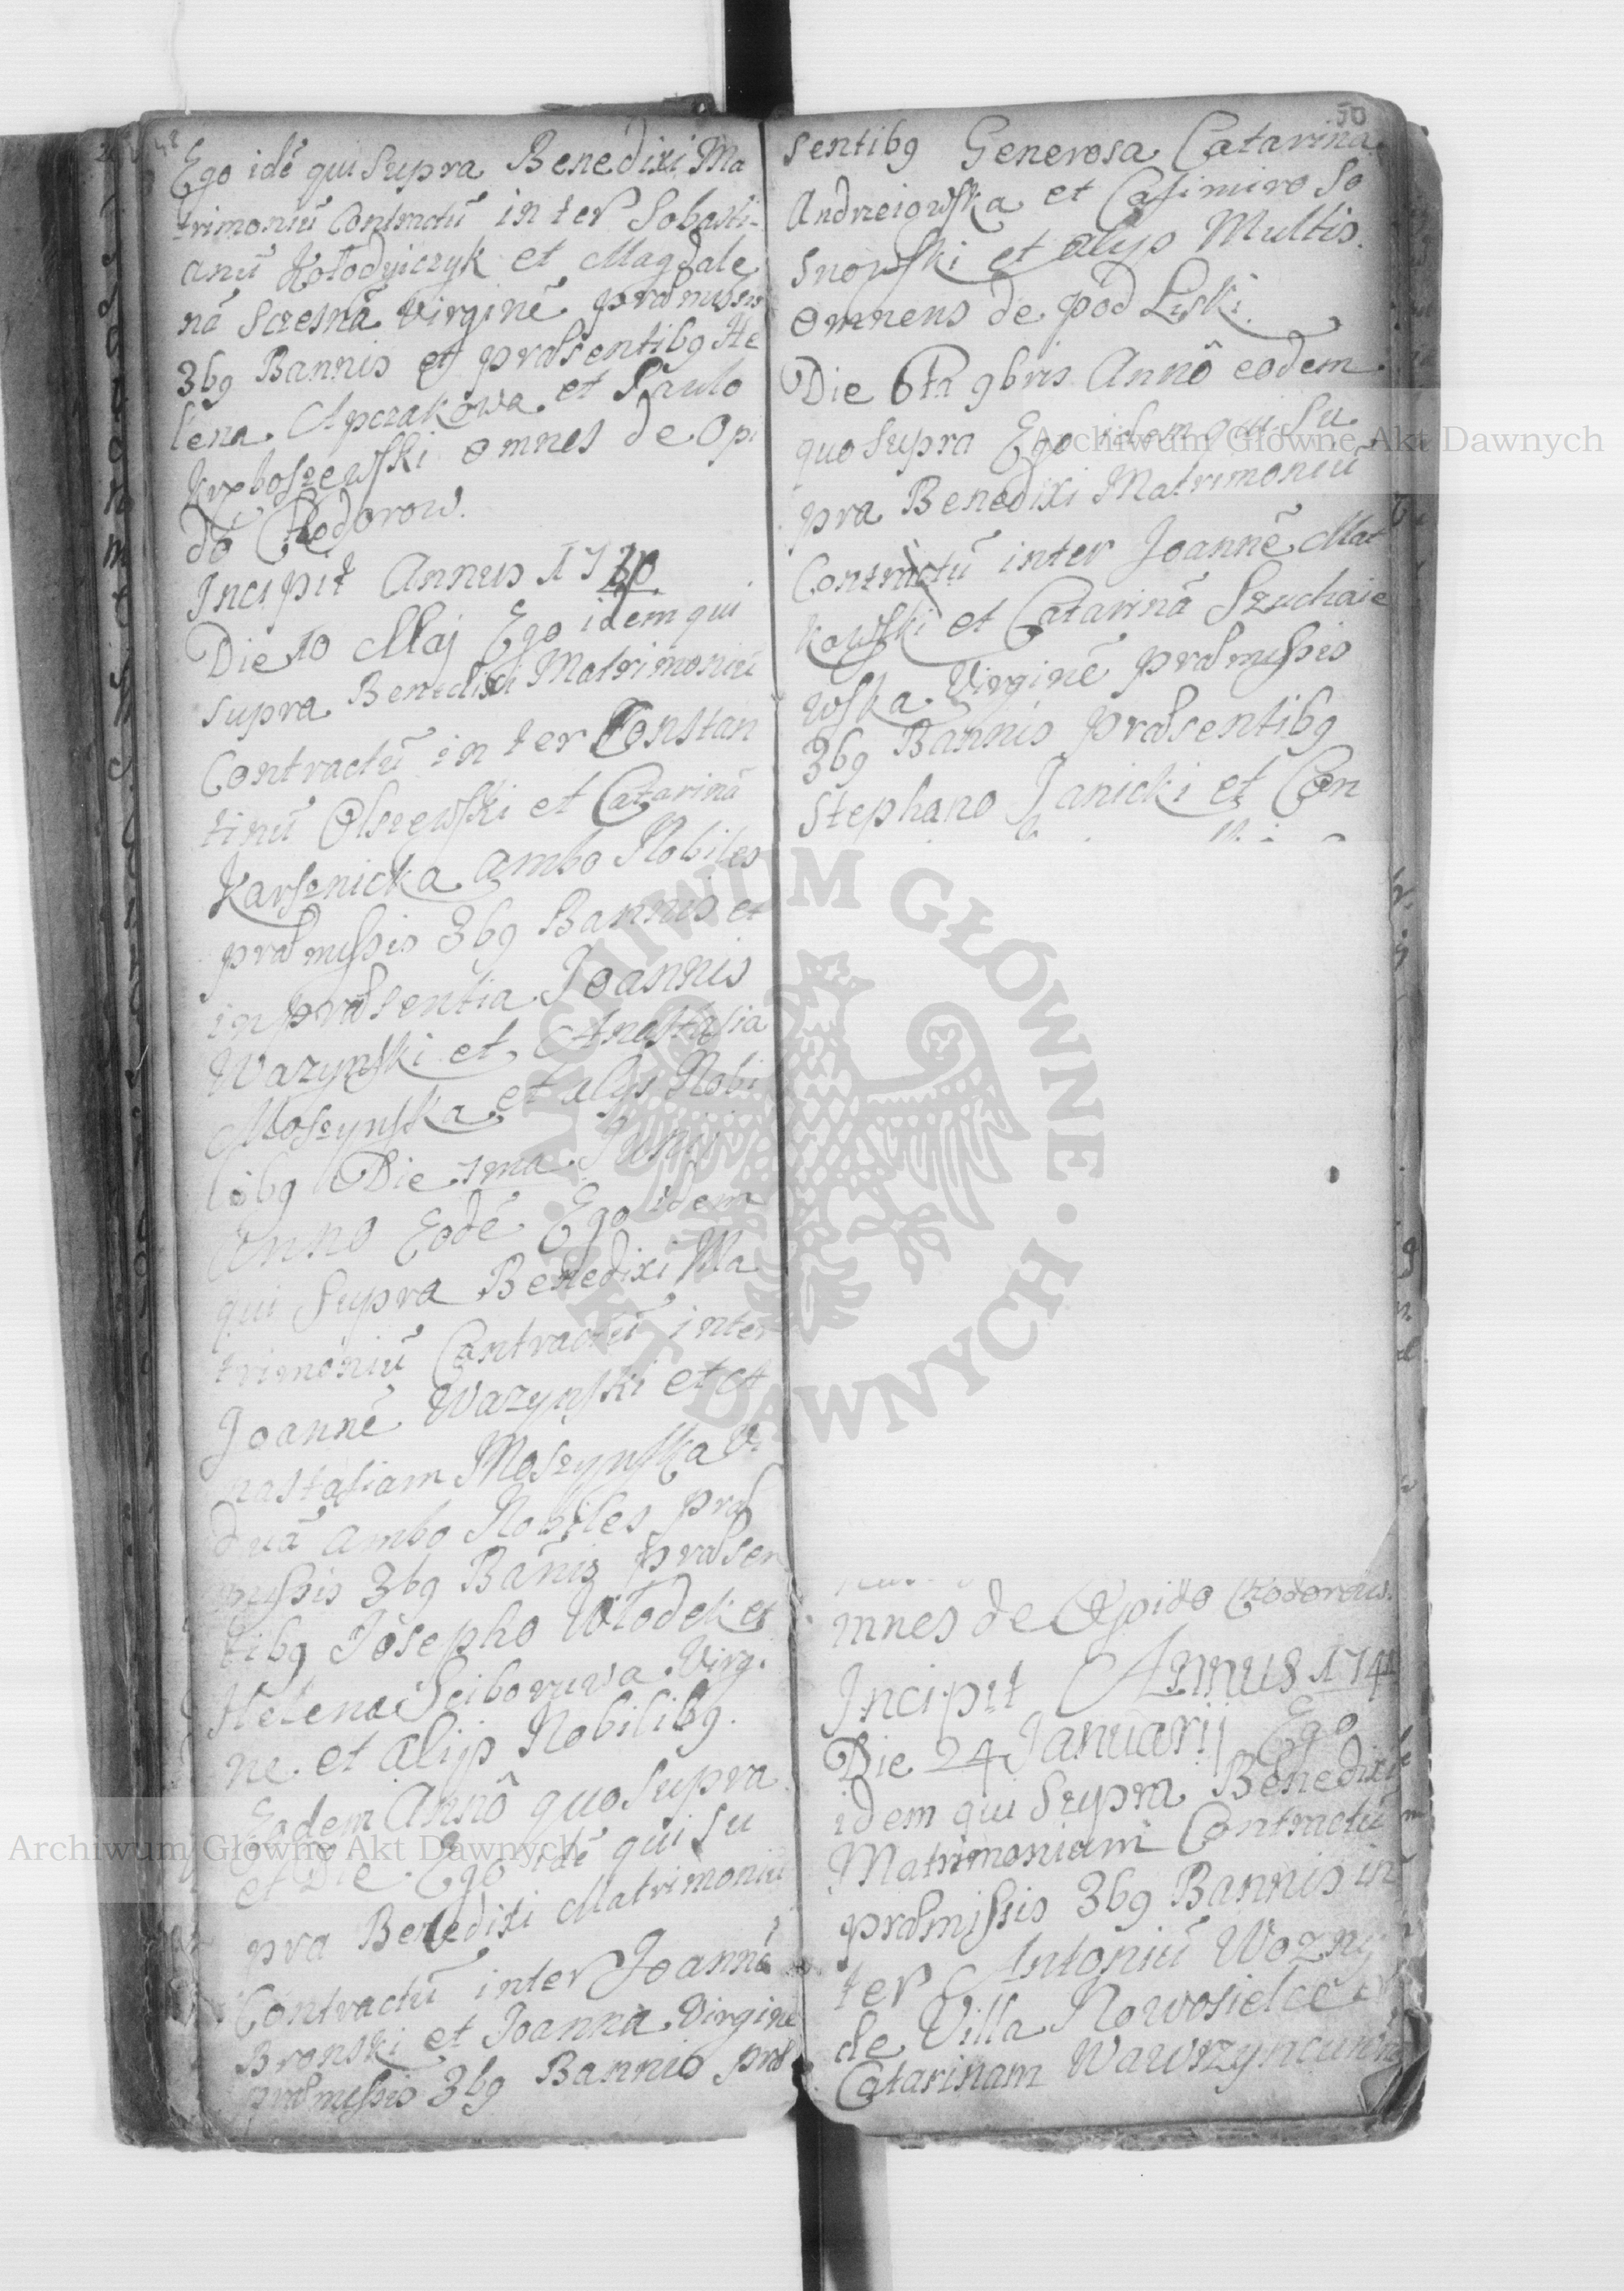 Ego idē qui Supra Benedixi Ma
trimoniū Contractū inter Sobasti-
anū Kołodyiczyk et Magdale
nā Sczesnā Virginē præmissis
3bq Bannis et præsentibq He
lena Apczakowa et Paulo
Krxboszewski omnes de Opi
dō Chodorow.
Incipit Annus 1740.
Die 10 Maj Ego idem qui
supra Benedixi Matrimoniū
Contractū inter Constan
tinū Olszewski et Catarinā
Karsznicka ambo Nobiles
præmissis 3bq Bannis et
in præsentia Joannis
Wazynski et Anastasia
Moszynska et alys Nobi
libq Die 1ma Junij
Anno Eodē Ego idem
qui Supra Benedixi Ma
trimoniū Contractū inter
Joannē Wazynski et A
nastasiam Moszynska Vi
duā ambo Nobiles præ
missis 3bq Bānis præsen
tibq Josepho Włodek et
Helena Sciborowa Virg.
ne et alijs Nobilibq.
Eadem Annô quo supra
et Die Ego idē qui su
pra Benedixi Matrimoniū
Contractū inter Joannē
Bronski et Joanna Virgine
præmissis 3bq Bannis præ
50
sentibq Generosa Catarina
Andrzeiowska et Casimiro So
snowski et alijs Multis.
omnens de pod Liski.
Die 6ta 9bris Annô eodem
quo supra Ego idem qui Su
pra Benedixi Matrimoniū
Contractū inter Joannē Mat
kowski et Catarinā Szuchaie
wska Virginē præmissis
3bq Bannis præsentibq
Stephano Janicki et Con
mnes de Opido Chodorow.
Incipit Annus 1741
Die 24 Januarij Ego
idem qui Supra Benedixi
Matrimonium Contractū
præmissis 3bq Bannis in
ter Antoniū Wozny
de Villa Nowosielce et
Catarinam Wawrzyncuwna
Archiwum Główne Akt Dawnych
Archiwum Główne Akt Dawnych
ARCHIWUM GŁÓWNE · AKT DAWNYCH ·